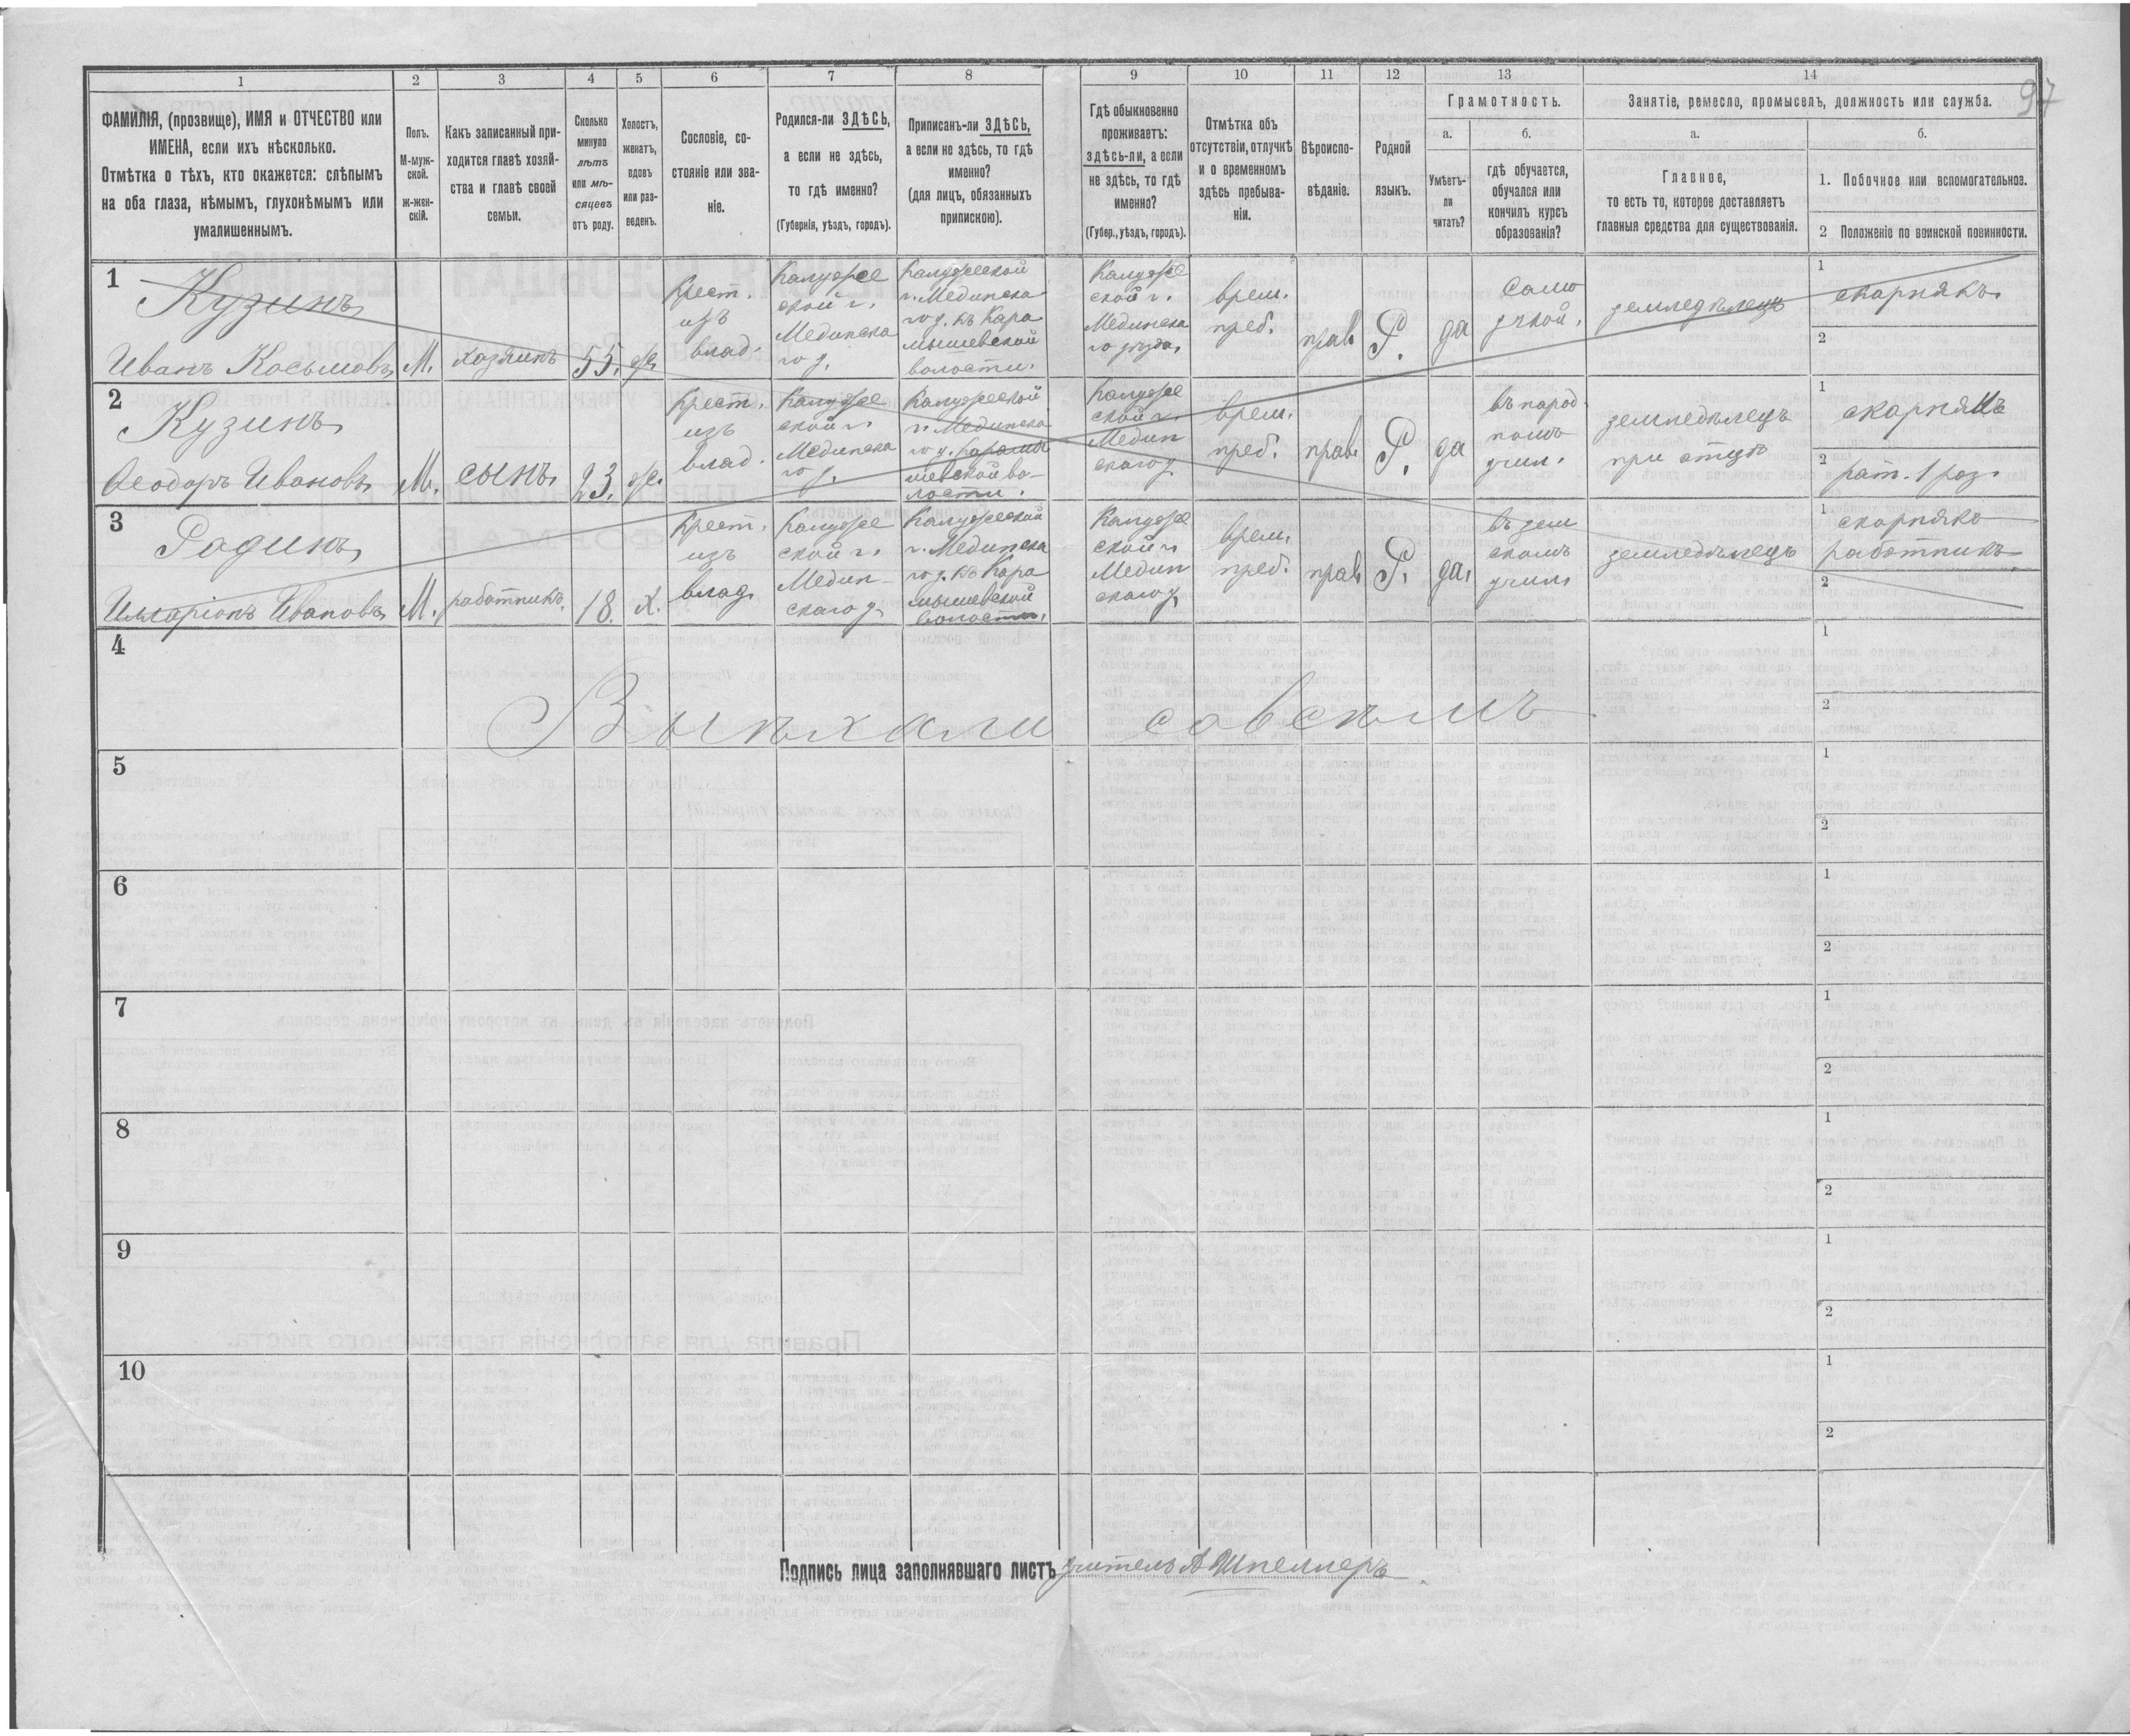 97
1
2
3
4
5
6
7
8
9
10
11
12
13
14
ФАМИЛІЯ, (прозвище), ИМЯ и ОТЧЕСТВО или
ИМЕНА, если ихъ нѣсколько.
Отмѣтка о тѣхъ, кто окажется: слѣпымъ
на оба глаза, нѣмымъ, глухонѣмымъ или
умалишеннымъ.
Полъ.
М-муж-
ской.
ж-жен-
скій.
Какъ записанный при-
ходится главѣ хозяй-
ства и главѣ своей
семьи.
Сколько
минуло
лѣтъ
или мѣ-
сяцевъ
отъ роду.
Холостъ,
женатъ,
вдовъ
или раз-
веденъ.
Сословіе, со-
стояніе или зва-
ніе.
Родился-ли ЗДѢСЬ,
а если не здѣсь,
то гдѣ именно?
(Губернія, уѣздъ, городъ).
Приписанъ-ли ЗДѢСЬ,
а если не здѣсь, то гдѣ
именно?
(для лицъ, обязанныхъ
припискою).
Гдѣ обыкновенно
проживаетъ:
здѣсь-ли, а если
не здѣсь, то гдѣ
именно?
(Губер., уѣздъ, городъ).
Отмѣтка объ
отсутствіи, отлучкѣ
и о временномъ
здѣсь пребыва-
ніи.
Вѣроиспо-
вѣданіе.
Родной
языкъ.
Грамотность.
а.
Умѣетъ-
ли
читать?
б.
гдѣ обучается,
обучался или
кончилъ курсъ
образованія?
Занятіе, ремесло, промыселъ, должность или служба.
а.
Главное,
то есть то, которое доставляетъ
главныя средства для существованія.
б.
1. Побочное или вспомогательное.
2 Положеніе по воинской повинности.
1
Кузинъ
Иванъ Косьмовъ
М.
хозяинъ
55.
ж.
крест.
изъ
влад.
Калужс
ской г.
Мединска
го у.
Калужской
г. Мединска
го у. къ Кара
мышевской
волости.
Калужс
ской г.
Мединска
го уѣзда.
врем.
преб.
прав.
Р.
да
само
учкой.
земледѣлецъ
1
скорнякъ
2
2
Кузинъ
Ѳеодоръ Ивановъ
М.
сынъ
23.
ж.
крест.
изъ
влад.
Калужс
ской г.
Мединска
го у.
Калужской
г. Мединска
го у. Карамы
шевской во-
лости.
Калужс
ской г.
Медин
скаго у.
врем.
преб.
прав.
Р.
да
въ народ
номъ
учил.
земледѣлецъ
при отцѣ
1
скорнякъ
2
рат. 1 раз.
3
Родинъ
Илларіонъ Ивановъ
М.
работникъ.
18.
х.
крест.
изъ
влад.
Калужс
ской г.
Медин
скаго у.
Калужской
г. Мединска
го у. къ Кара
мышевской
волости.
Калужс
ской г.
Медин
скаго у.
врем.
преб.
прав.
Р.
да.
въ зем
скомъ
учил.
земледѣлецъ
1
скорняко
работникъ
2
4
1
2
Выѣхали совсѣмъ
5
1
2
6
1
2
7
1
2
8
1
2
9
1
2
10
1
2
Подпись лица заполнявшаго листъ учитель А Шпеллеръ